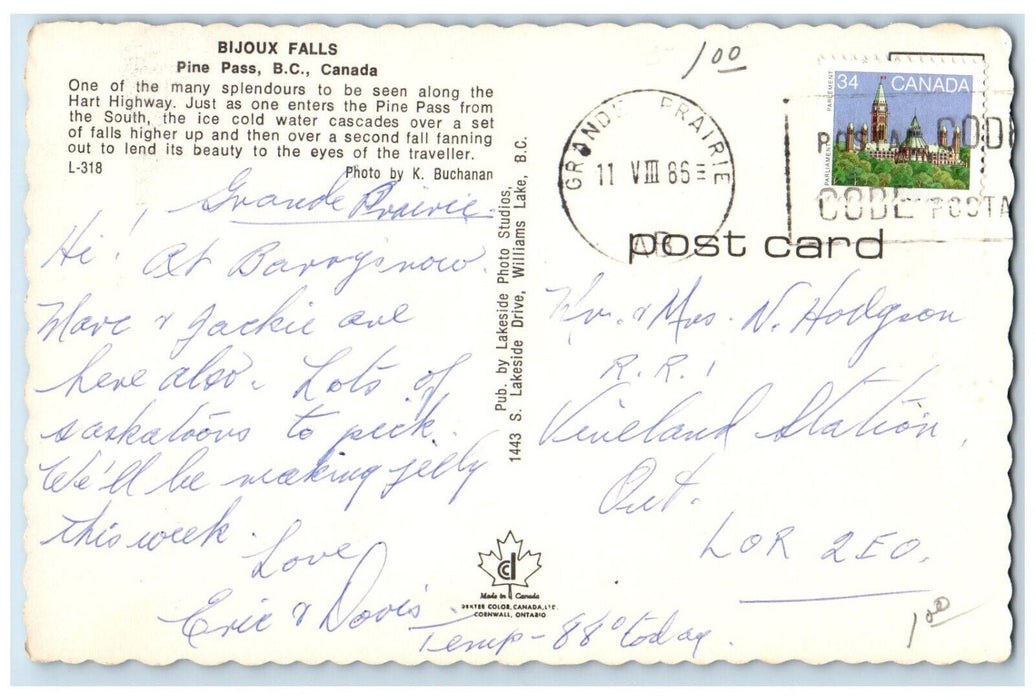 BIJOUX FALLS
Pine Pass, B.C., Canada
One of the many splendours to be seen along the
Hart Highway. Just as one enters the Pine Pass from
the South, the ice cold water cascades over a set
of falls higher up and then over a second fall fanning
out to lend its beauty to the eyes of the traveller.
L-318
Photo by K. Buchanan
Grande Prairie.
Hi! At Barry's now.
Marc & Jackie are
here also. Lots of
saskatoons to pick.
We'll be making jelly
this week.
Love
Eric & Doris.
Temp - 88° today.
Pub. by Lakeside Photo Studios,
1443 S. Lakeside Drive, Williams Lake, B.C.
Made in Canada
DEXTER COLOR, CANADA, LTD.
CORNWALL, ONTARIO
1.00
GRANDE PRAIRIE
11 VIII 86
AB
34 CANADA
PARLIAMENT
PARLEMENT
POSTAL CODE
CODE POSTA
post card
Mr. & Mrs. N. Hodgson
R.R. 1
Vineland Station,
Ont.
L0R 2E0.
1.00